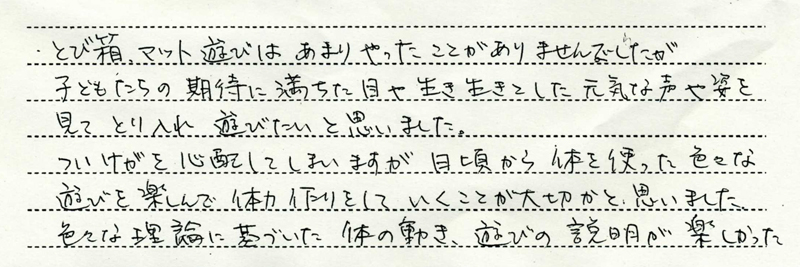 ・とび箱、マット遊びは あまりやったことがありませんでしたが
子どもたちの 期待に満ちた目や生き生きとした元気な声や姿を
見て とり入れ 遊びたいと思いました。
ついけがを心配してしまいますが 日頃から 体を使った色々な
遊びを楽しんで 体力作りをして いくことが大切かと思いました。
色々な理論に基づいた 体の動き、遊びの 説明が 楽しかった